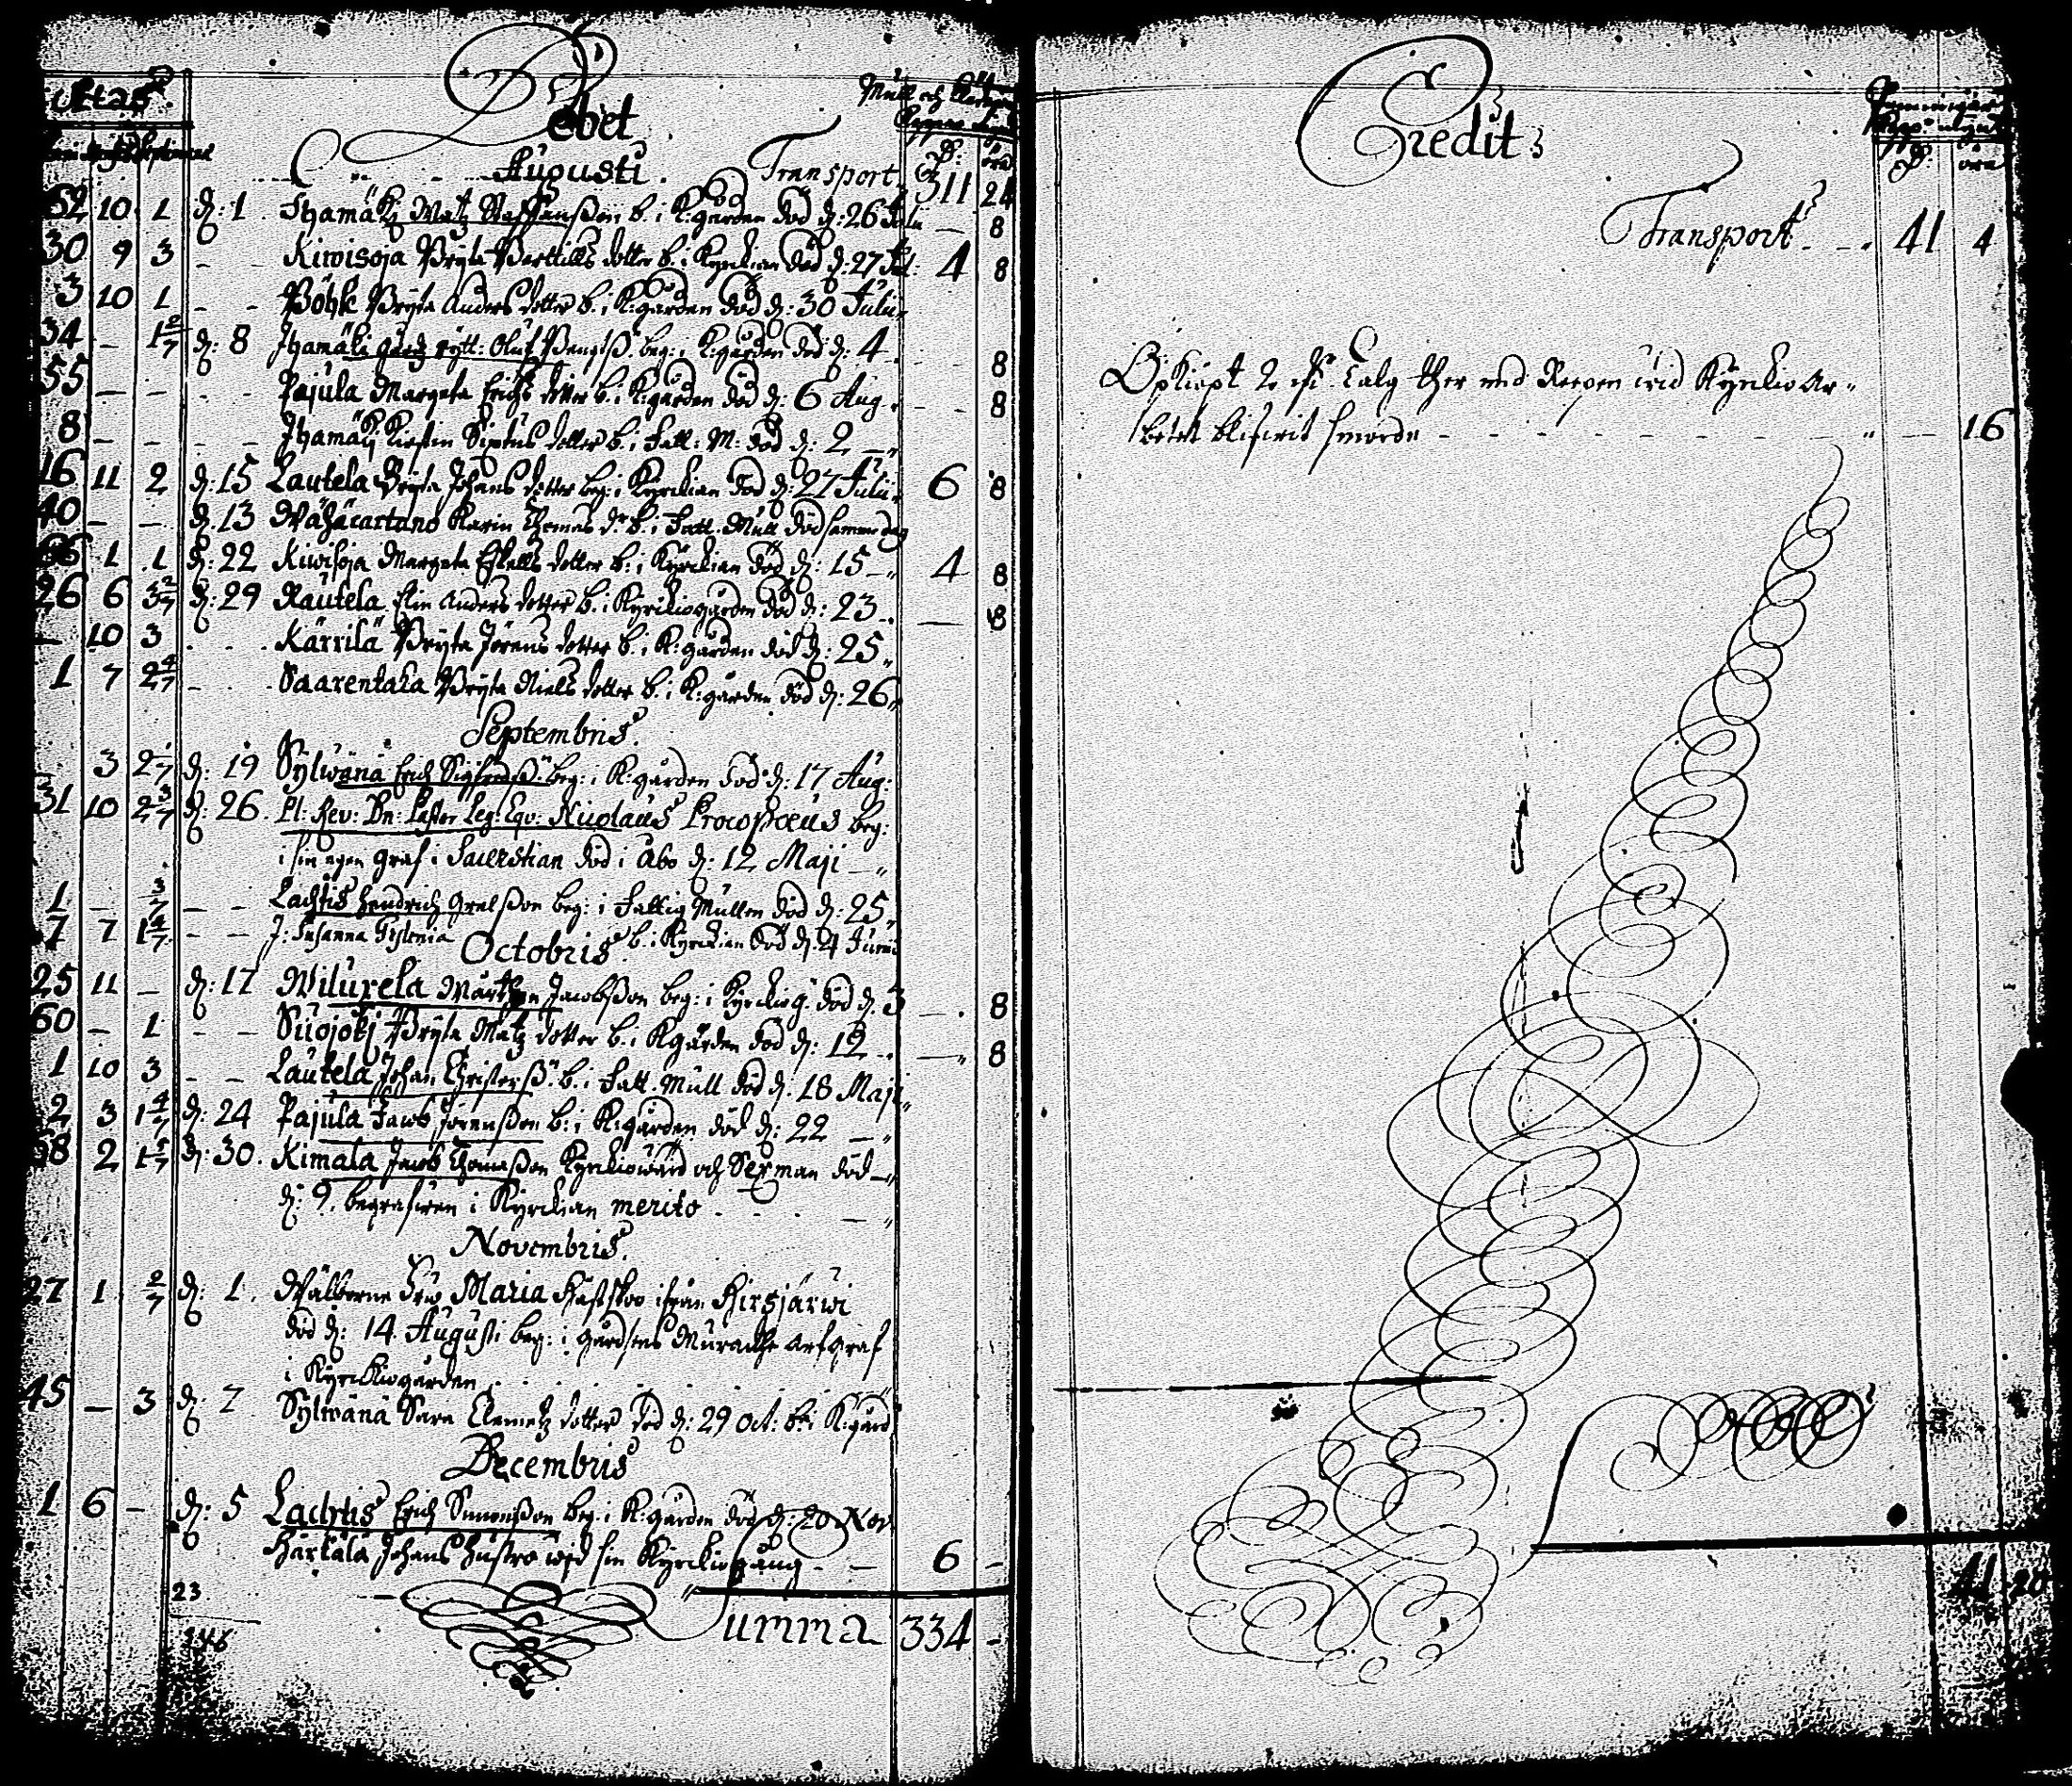 Ætas
Debet
Mull och
Augusti. Transport 311 24
52 10 1 d: 1 Ihamäki Matz Staffansson b. i K:gården död d: 26 Julii — 8
30 9 3 Kiwisoja Bryta Berttills dotter b. i Kyrckian död d: 27 Jul: 4 8
3 10 1 Böhk Bryta Anders dotter b. i K:gården död d: 30 Julii
34 — 1 2/7 d: 8 Ihamäki rytt: Oluf Bengtss. beg: i K:gården död d: 4 8
55 Pajula Margeta Erichs dotter b. i K:gården död d: 6 Aug. 8
8 Ihamäki Kirstin dotter b. i Fatt: M: död d: 2
16 11 2 d: 15 Lautela Bryta Johans dotter beg: i Kyrckian död d: 27 Julii 6 8
40 — d. 13 Wähäcartano Karin Thomas dr b. i Fatt. Mull död samma dag
1 1 d: 22 Kiwisoja Margeta Eskells dotter b: i Kyrckian död d: 15 4 8
26 6 3 2/7 d: 29 Rautela Elin Anders dotter b. i Kyrckiogården död d: 23 — 8
— 10 3 Kärrilä Bryta Jörens dotter b. i K:gården död d: 25
1 7 2 4/7 Saarentaka Bryta Niels dotter b. i K:gården död d: 26
Septembris.
3 2 1/7 d: 19 Sylwänä Erich Sigfredss. beg: i K:gården död d: 17 Aug:
31 10 2 3/7 d: 26. Pl: Rev: Dn: Pastor Leg: Eqv: Nicolaus Procopoeus beg:
i sin egen graf i Sacrestian död i Åbo d: 12 Maji
1 — 3/7 Lachtis Hendrich Grelsson beg: i Fattig Mullen död d: 25
7 7 1 4/7 J: Susanna Gislenia b. i Kyrckian död d. 4 Junii
Octobris.
25 11 — d: 17 Wilurela Mårthen Jacobsson beg: i Kyrckiog. död d. 3 — 8
60 — 1 Suojoki Bryta Matz dotter b. i Kgården död d: 12 — 8
1 10 3 Lautela Johan Christerss. b. i Fatt. Mull död d: 18 Maji
2 3 1 4/7 d: 24 Pajula Jacob Jörensson b: i K:gården död d: 22
2 1 5/7 d: 30. Kimala Jacob Thomasson Kyrckiowärd och Sexman död
d: 9. begrafwen i Kyrckian merito
Novembris.
27 1 2/7 d: 1. Wälborne Frw Maria Hästskoo ifrån Hirsjärwi
död d: 14. Augusti beg: i gårdsens Murade arfgraf
i Kyrckiogården
45 — 3 d: 7 Sylwänä Sara Clemetz dotter död d: 29 Oct: b: i K:gård
Decembris
1 6 — d: 5 Lachtis Erich Simonsson beg: i K:gården död d: 20 Nov
Härkälä Johans hustro wid sin Kyrckiogång 6 —
23
Summa 334 —
146
Credit
öre
Transport 41 4
Opkiöpt 2 Talg ther med Reepen wid Kyrckio Ar-
betet blifwit smorde 16
41 20